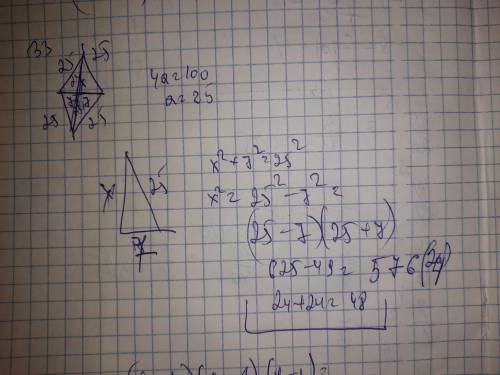 33
25 25
25 25
4a=100
a=25
x 25
7
x²+7²=25²
x²=25²-7²=
(25-7)(25+7)
625-49=576(24)
24+24=48